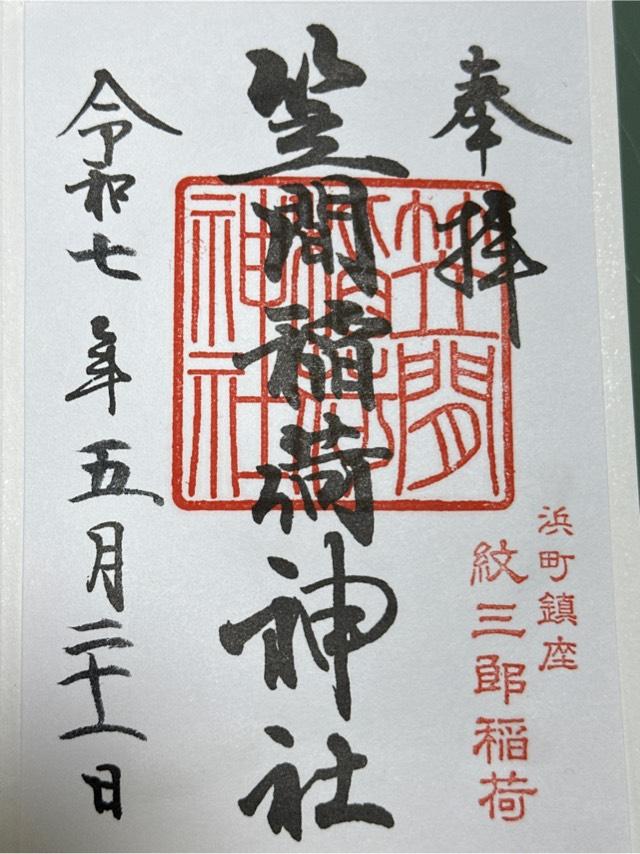 奉拝
浜町鎮座
紋三郎稲荷
笠間稲荷神社
笠間
稲荷
神社
令和七年五月二十一日